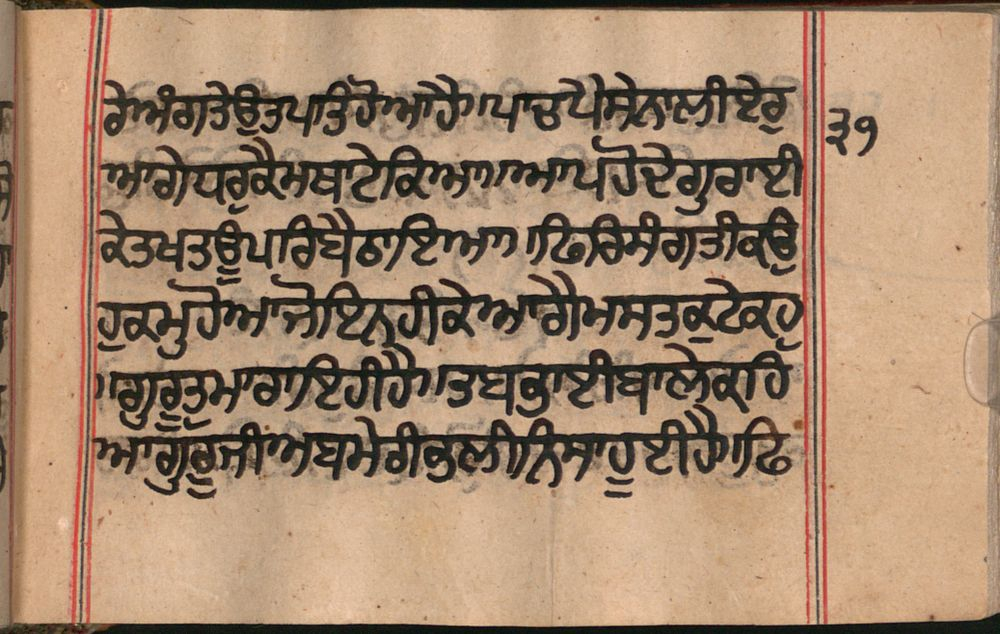 ਰੇ ਅੰਗ ਤੇ ਉਤਪਤਿ ਹੋਆ ਹੈ। ਪਾਚ ਪੈਸੇ ਨਾਲੀਏਰੁ
੩੧
ਆਗੇ ਧਰੁ ਕੈ ਮਥਾ ਟੇਕਿਆ।। ਆਪ ਹੋਦੇ ਗੁਰਾਈ
ਕੇ ਤਖਤ ਊਪਰਿ ਬੈਠਾਇਆ।। ਫਿਰਿ ਸੰਗਤੀ ਕਉ
ਹੁਕਮੁ ਹੋਆ ਜੋ ਇਨਹੀ ਕੇ ਆਗੈ ਮਸਤਕੁ ਟੇਕਹੁ
।ਗੁਰੂ ਤੁਮਾਰਾ ਇਹੀ ਹੈ।। ਤਬ ਭਾਈ ਬਾਲੇ ਕਹਿ
ਆ ਗੁਰੂ ਜੀ ਅਬ ਮੇਰੀ ਭੁਲੀ ਨਿਸਾ ਹੂਈ ਹੈ। ਫਿ